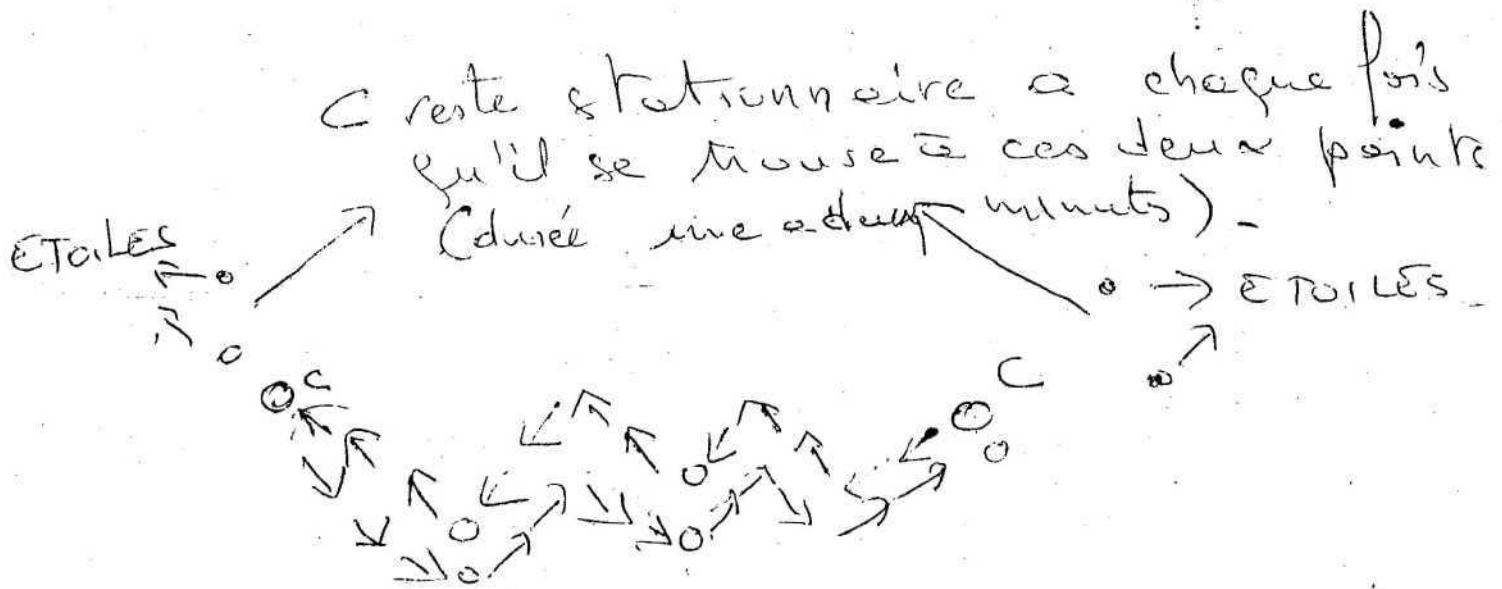 C reste stationnaire a chaque fois
qu'il se trouve à ces deux points
(durée une a deux minuts) -
ETOILES
ETOILES -
C
C